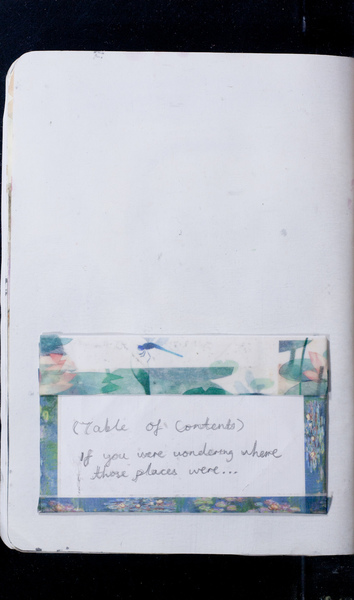 (Table of Contents)
If you were wondering where
those places were...